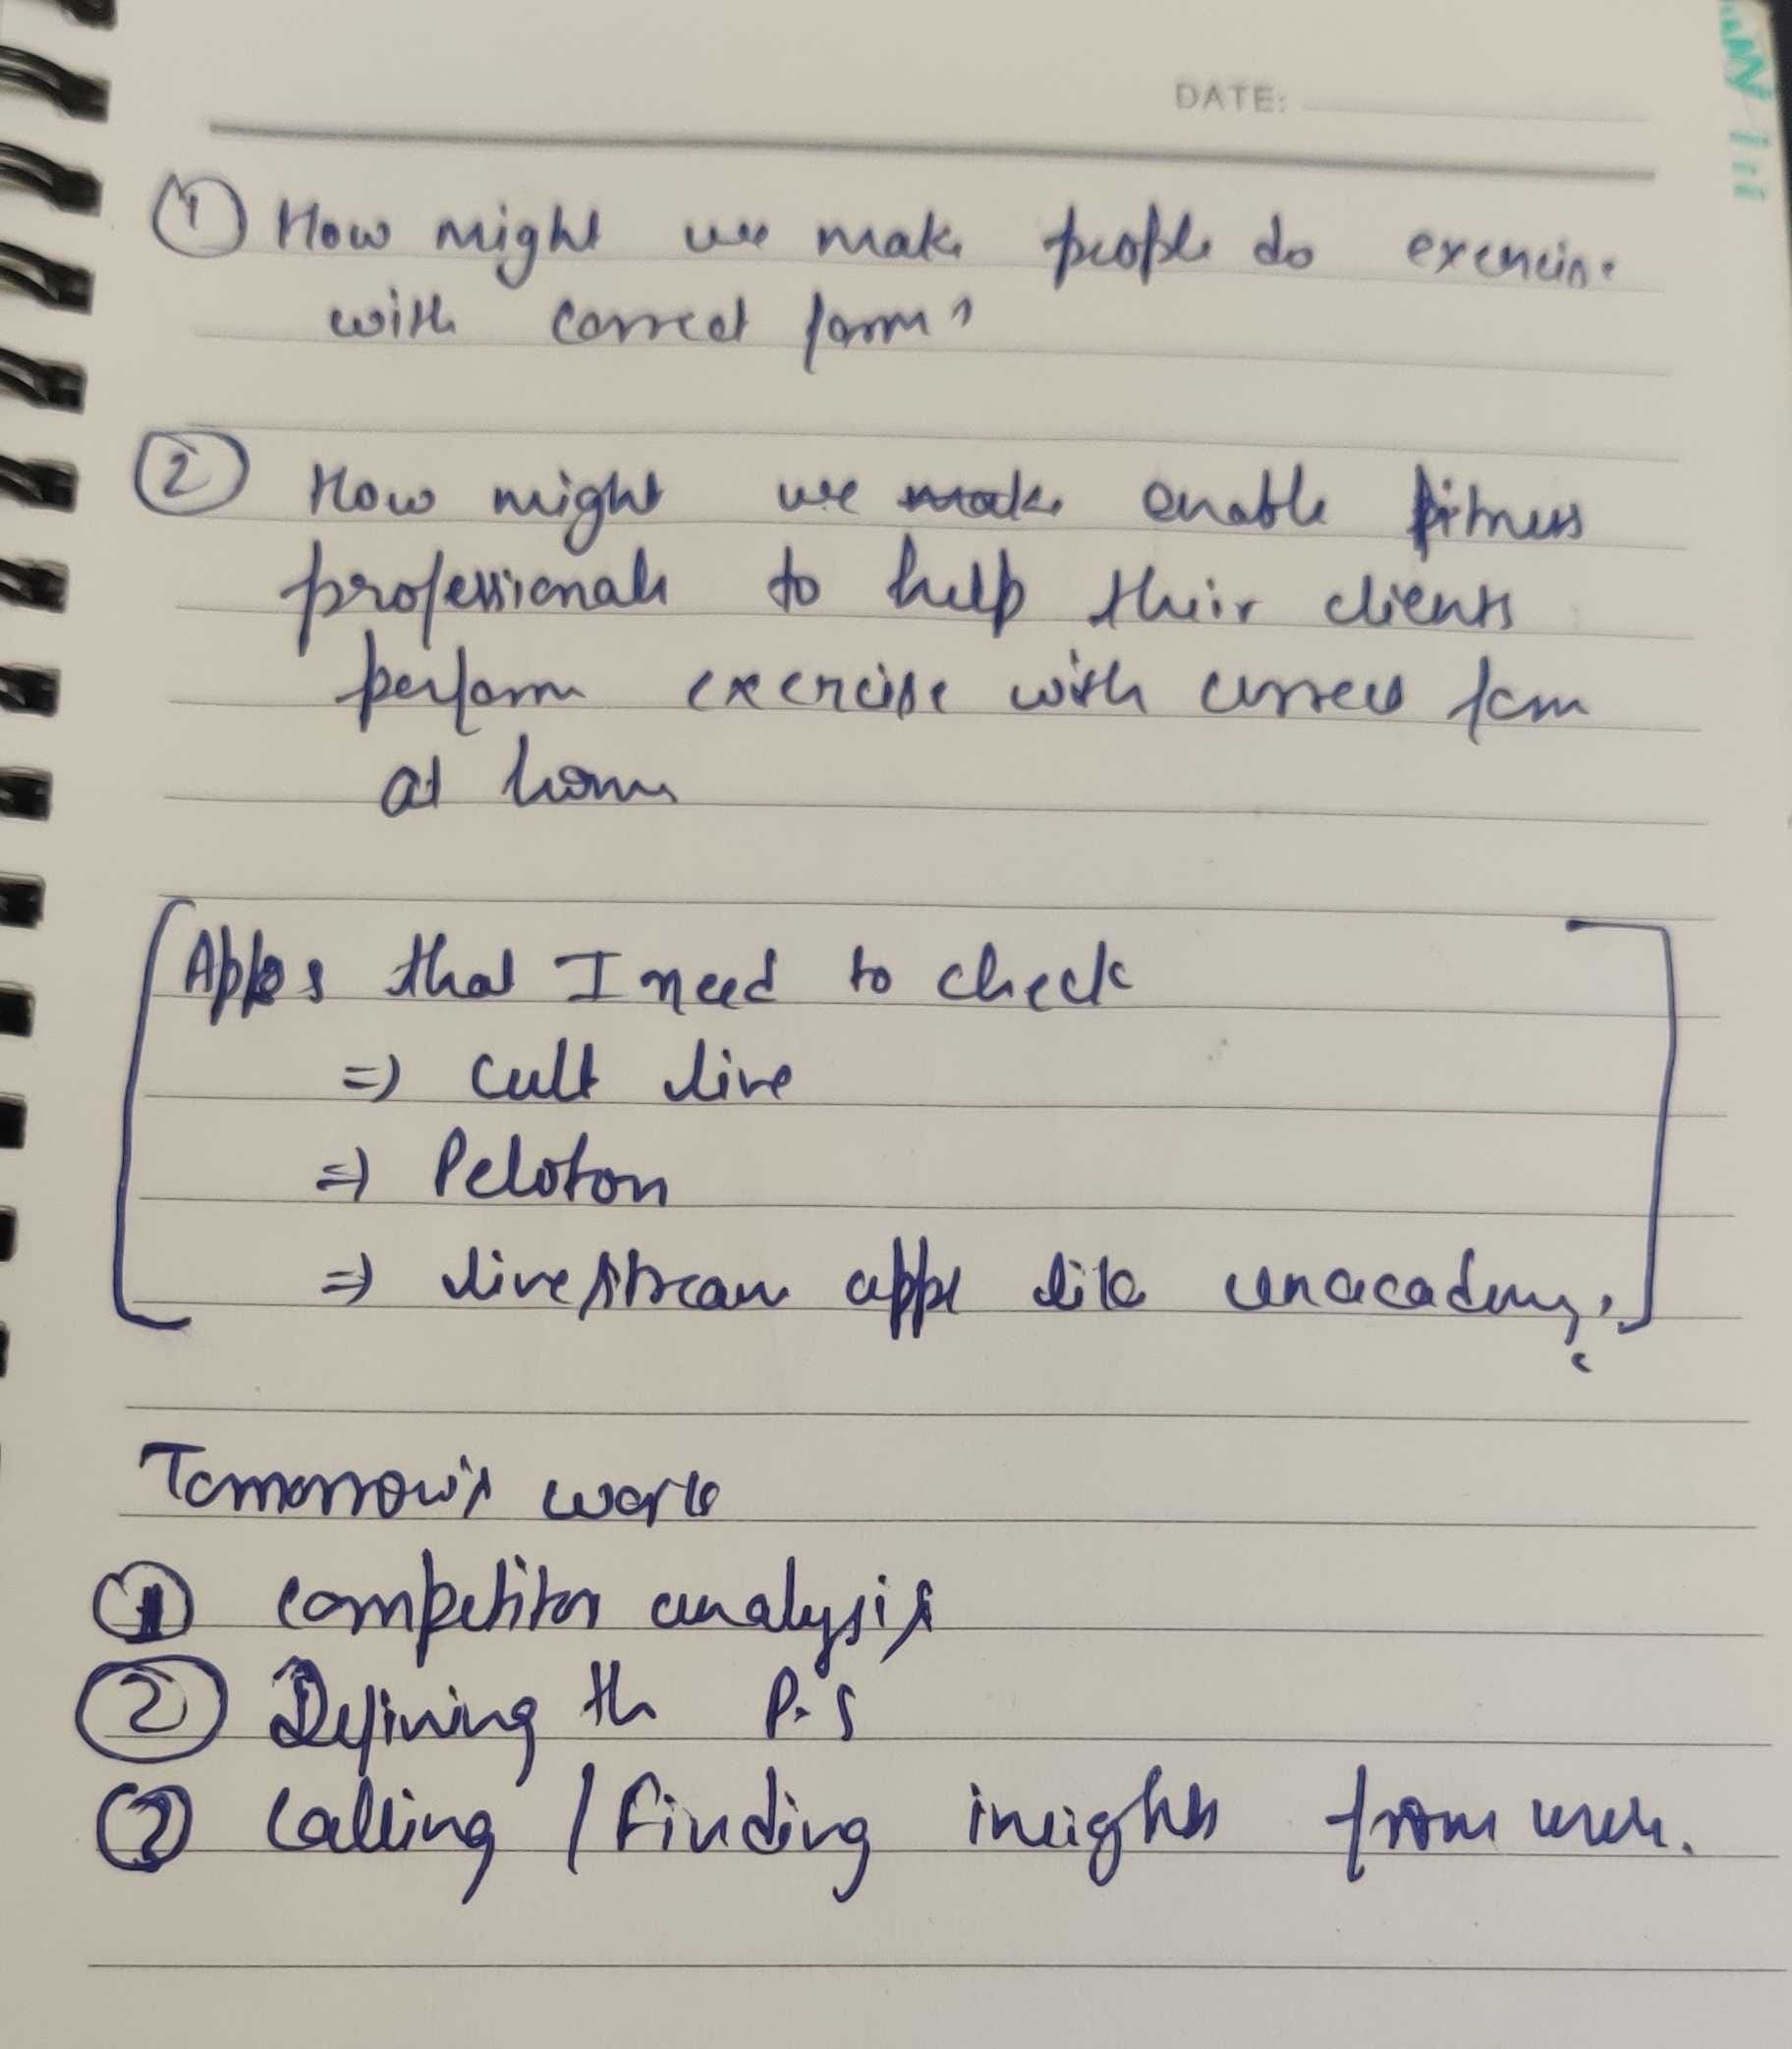 DATE:
① How might we make people do exercise
with correct form?
② How might we make enable fitness
professionals to help their clients
perform exercise with correct form
at home
Apps that I need to check
=> Cult live
=> Peloton
=> livestream apps like unacademy.
Tomorrow's work
① Competitor analysis
② Defining the P.S
③ Calling / Finding insights from users.